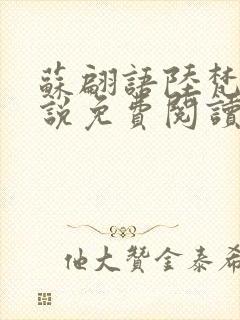 蘇翩語陸梵
說免費閱讀
他大贊金泰希